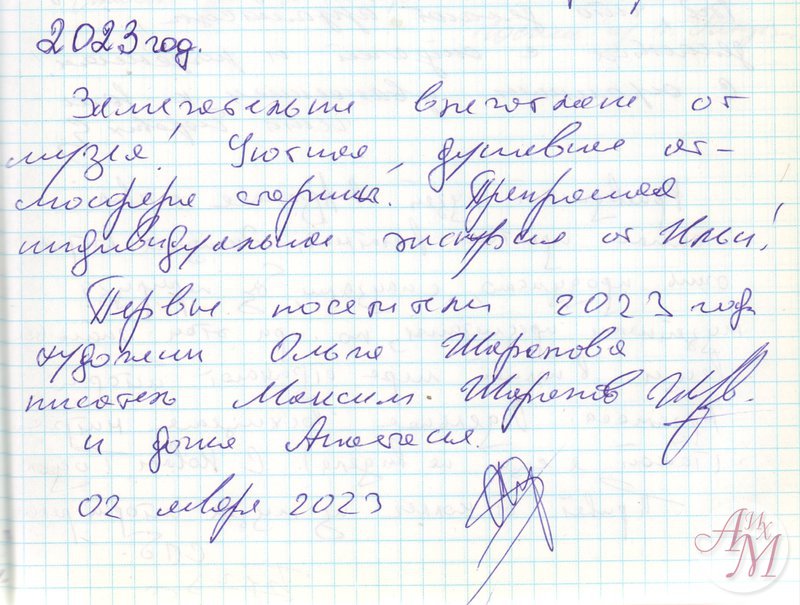 2023 год.
Замечательные впечатления от
музея! Уютная, душевная ат-
мосфера старины. Прекрасная
индивидуальная экскурсия от Ильи!
Первые посетители 2023 года
художник Ольга Шарапова
писатель Максим Шарапов
и дочка Анастасия.
02 января 2023
АИХМ